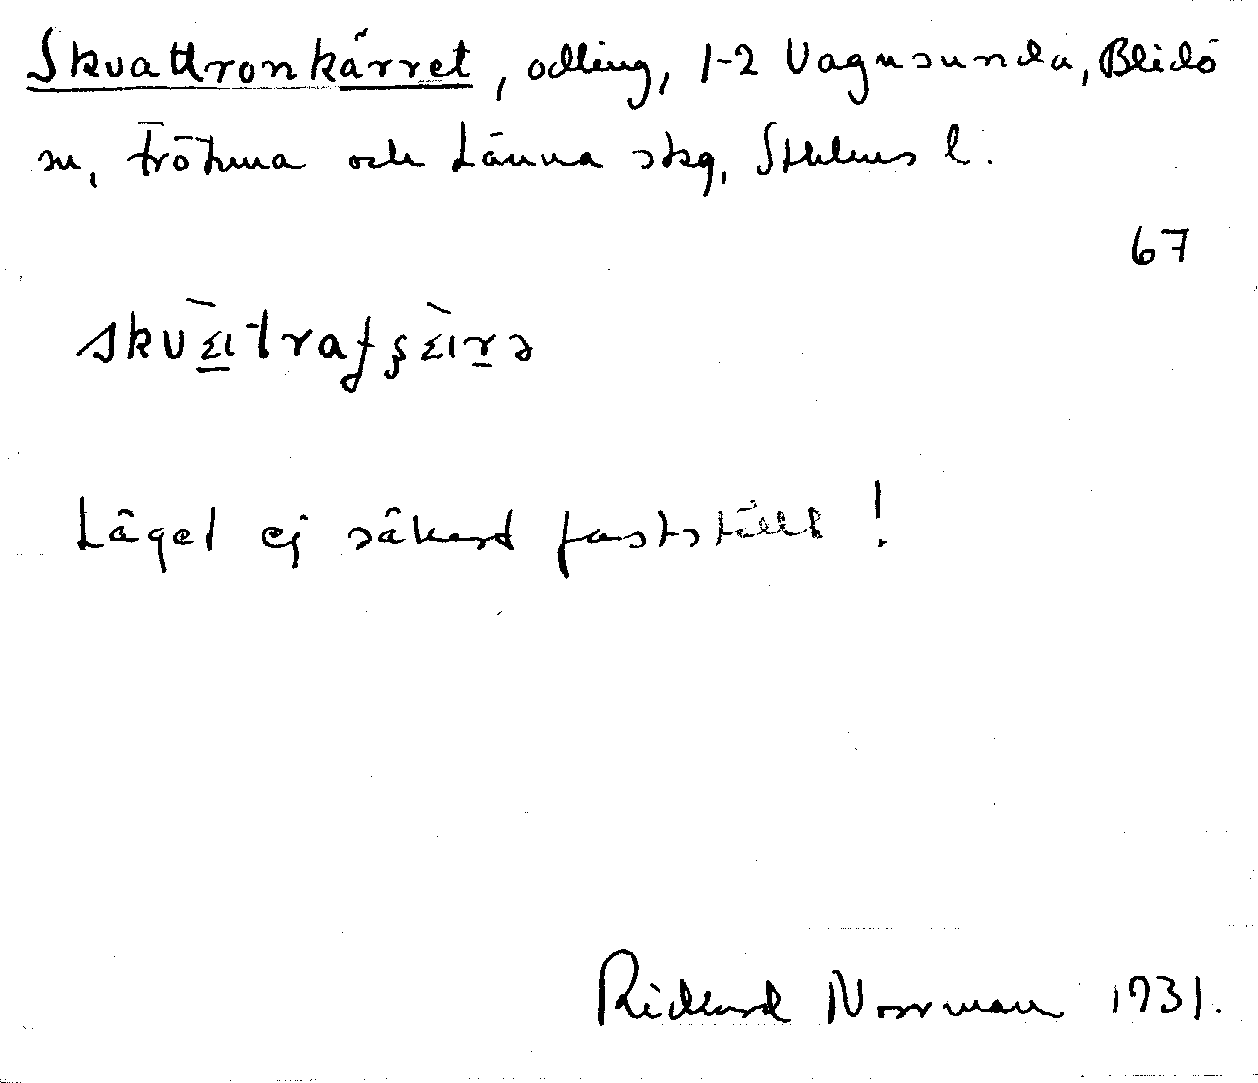 Skvattronkärret, odling, 1-2 Vagnsunda, Blidö
sn, Frötuna och Länna skg, Sthlms l.
67
Läget ej säkert fastställt!
Rickard Norrman 1931.